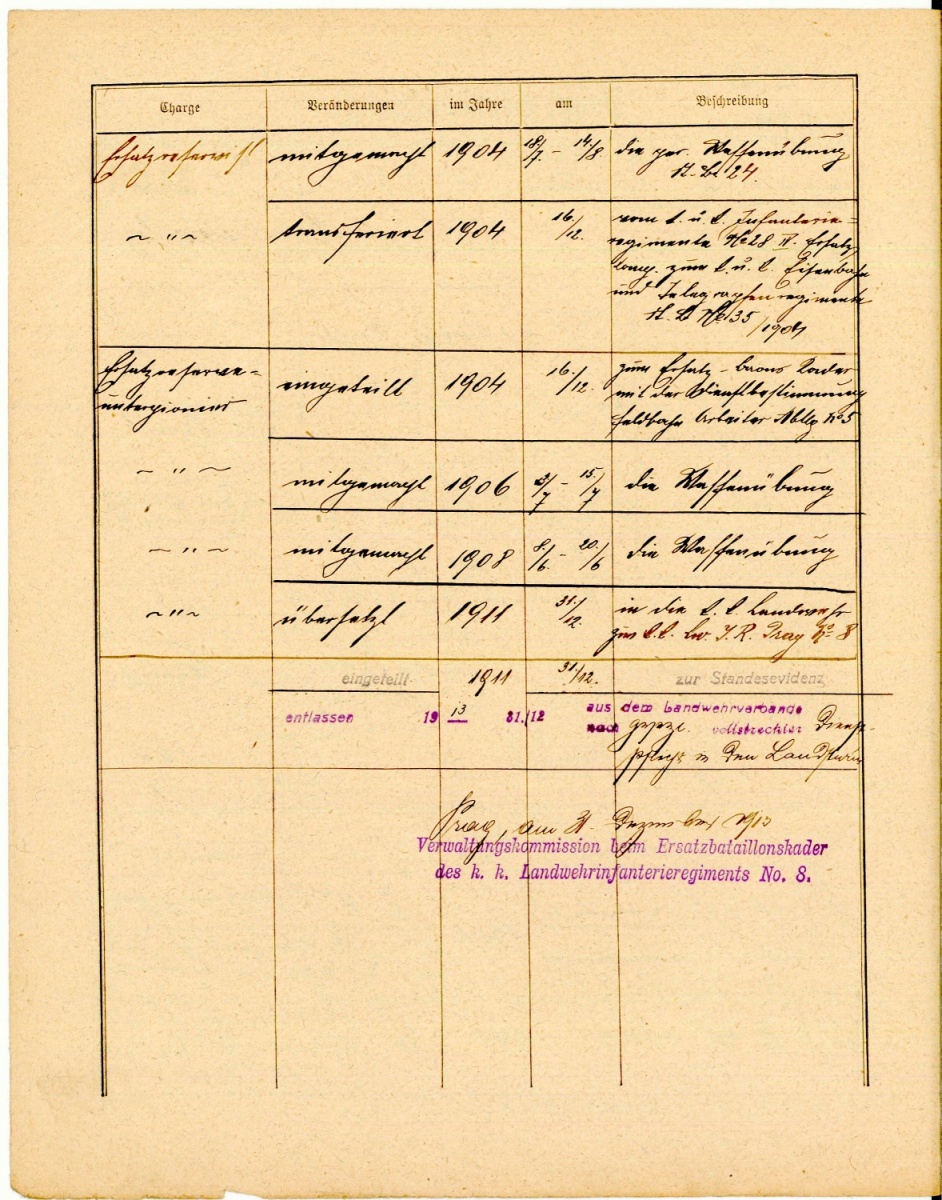 Charge Veränderungen im Jahre am Beschreibung
Ersatzreservist mitgemacht 1904 18./7 - 14./8 die per. Waffenübung
24.
~ " ~ transferiert 1904 16./12. vom k. u. k. Infanterie=
regimente No 28 IV. Ersatz
komp. zum k. u. k. Eisenbahn
und Telegraphenregimente
No 35/1904
Ersatzreserve= eingeteilt 1904 16./12. zum Ersatz-baons Kader
unterpionier mit der Dienstbestimmung
Feldbahn Arbeiter Abtlg No 5
~ " ~ mitgemacht 1906 3/7 - 15./7 die Waffenübung
~ " ~ mitgemacht 1908 8./6 - 20./6 die Waffenübung
~ " ~ übersetzt 1911 31./12. in die k. k. Landwehr
zum k.k. Lw. I. R. Prag No 8
eingeteilt 1911 31./12. zur Standesevidenz
entlassen 1913 31./12 aus dem Landwehrverbande
nach gesetzl. vollstreckter Dienst-
pflicht in den Landsturm
Prag, am 31. Dezember 1913
Verwaltungskommission beim Ersatzbataillonskader
des k. k. Landwehrinfanterieregiments No. 8.